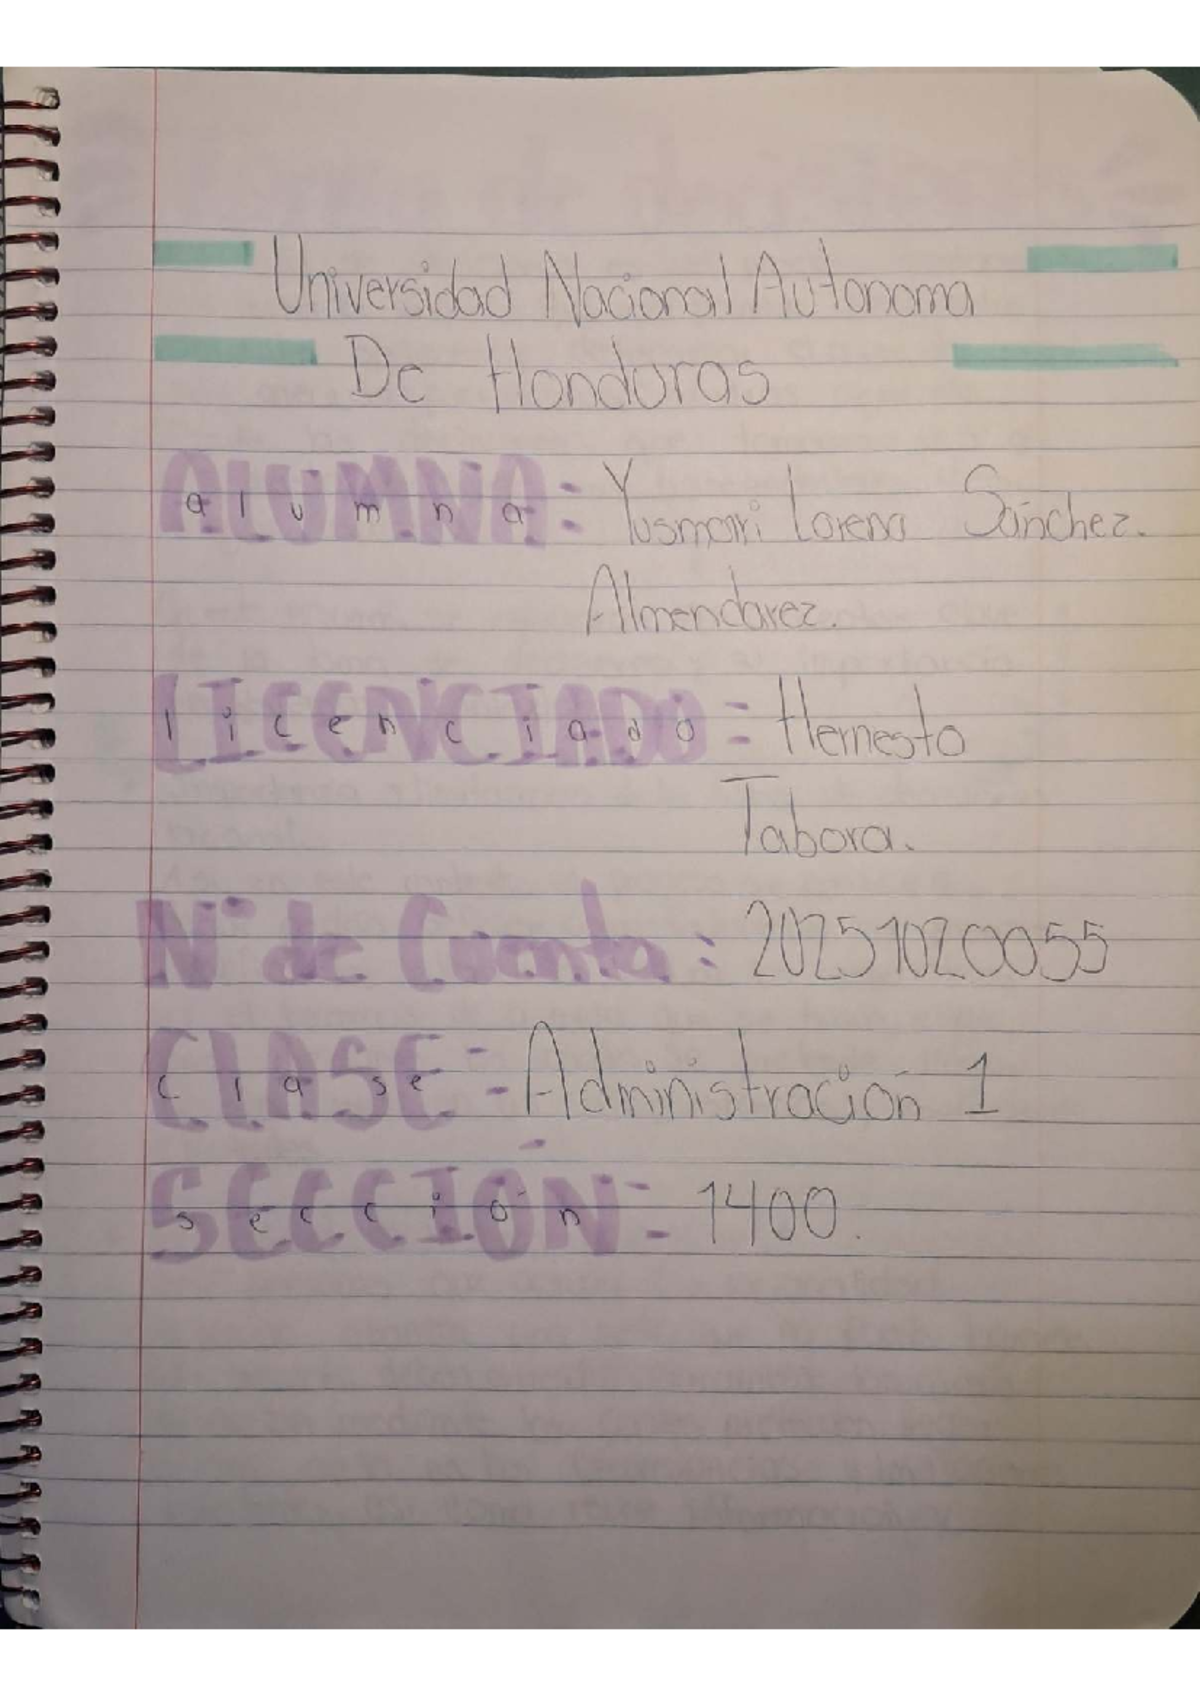 Universidad Nacional Autonoma
De Honduras
ALUMNA: Yusmari Lorena Sánchez.
Almendarez.
LICENCIADO: Hernesto
Tabora.
N° de Cuenta: 20251020055
CLASE: Administración 1
SECCIÓN: 1400.